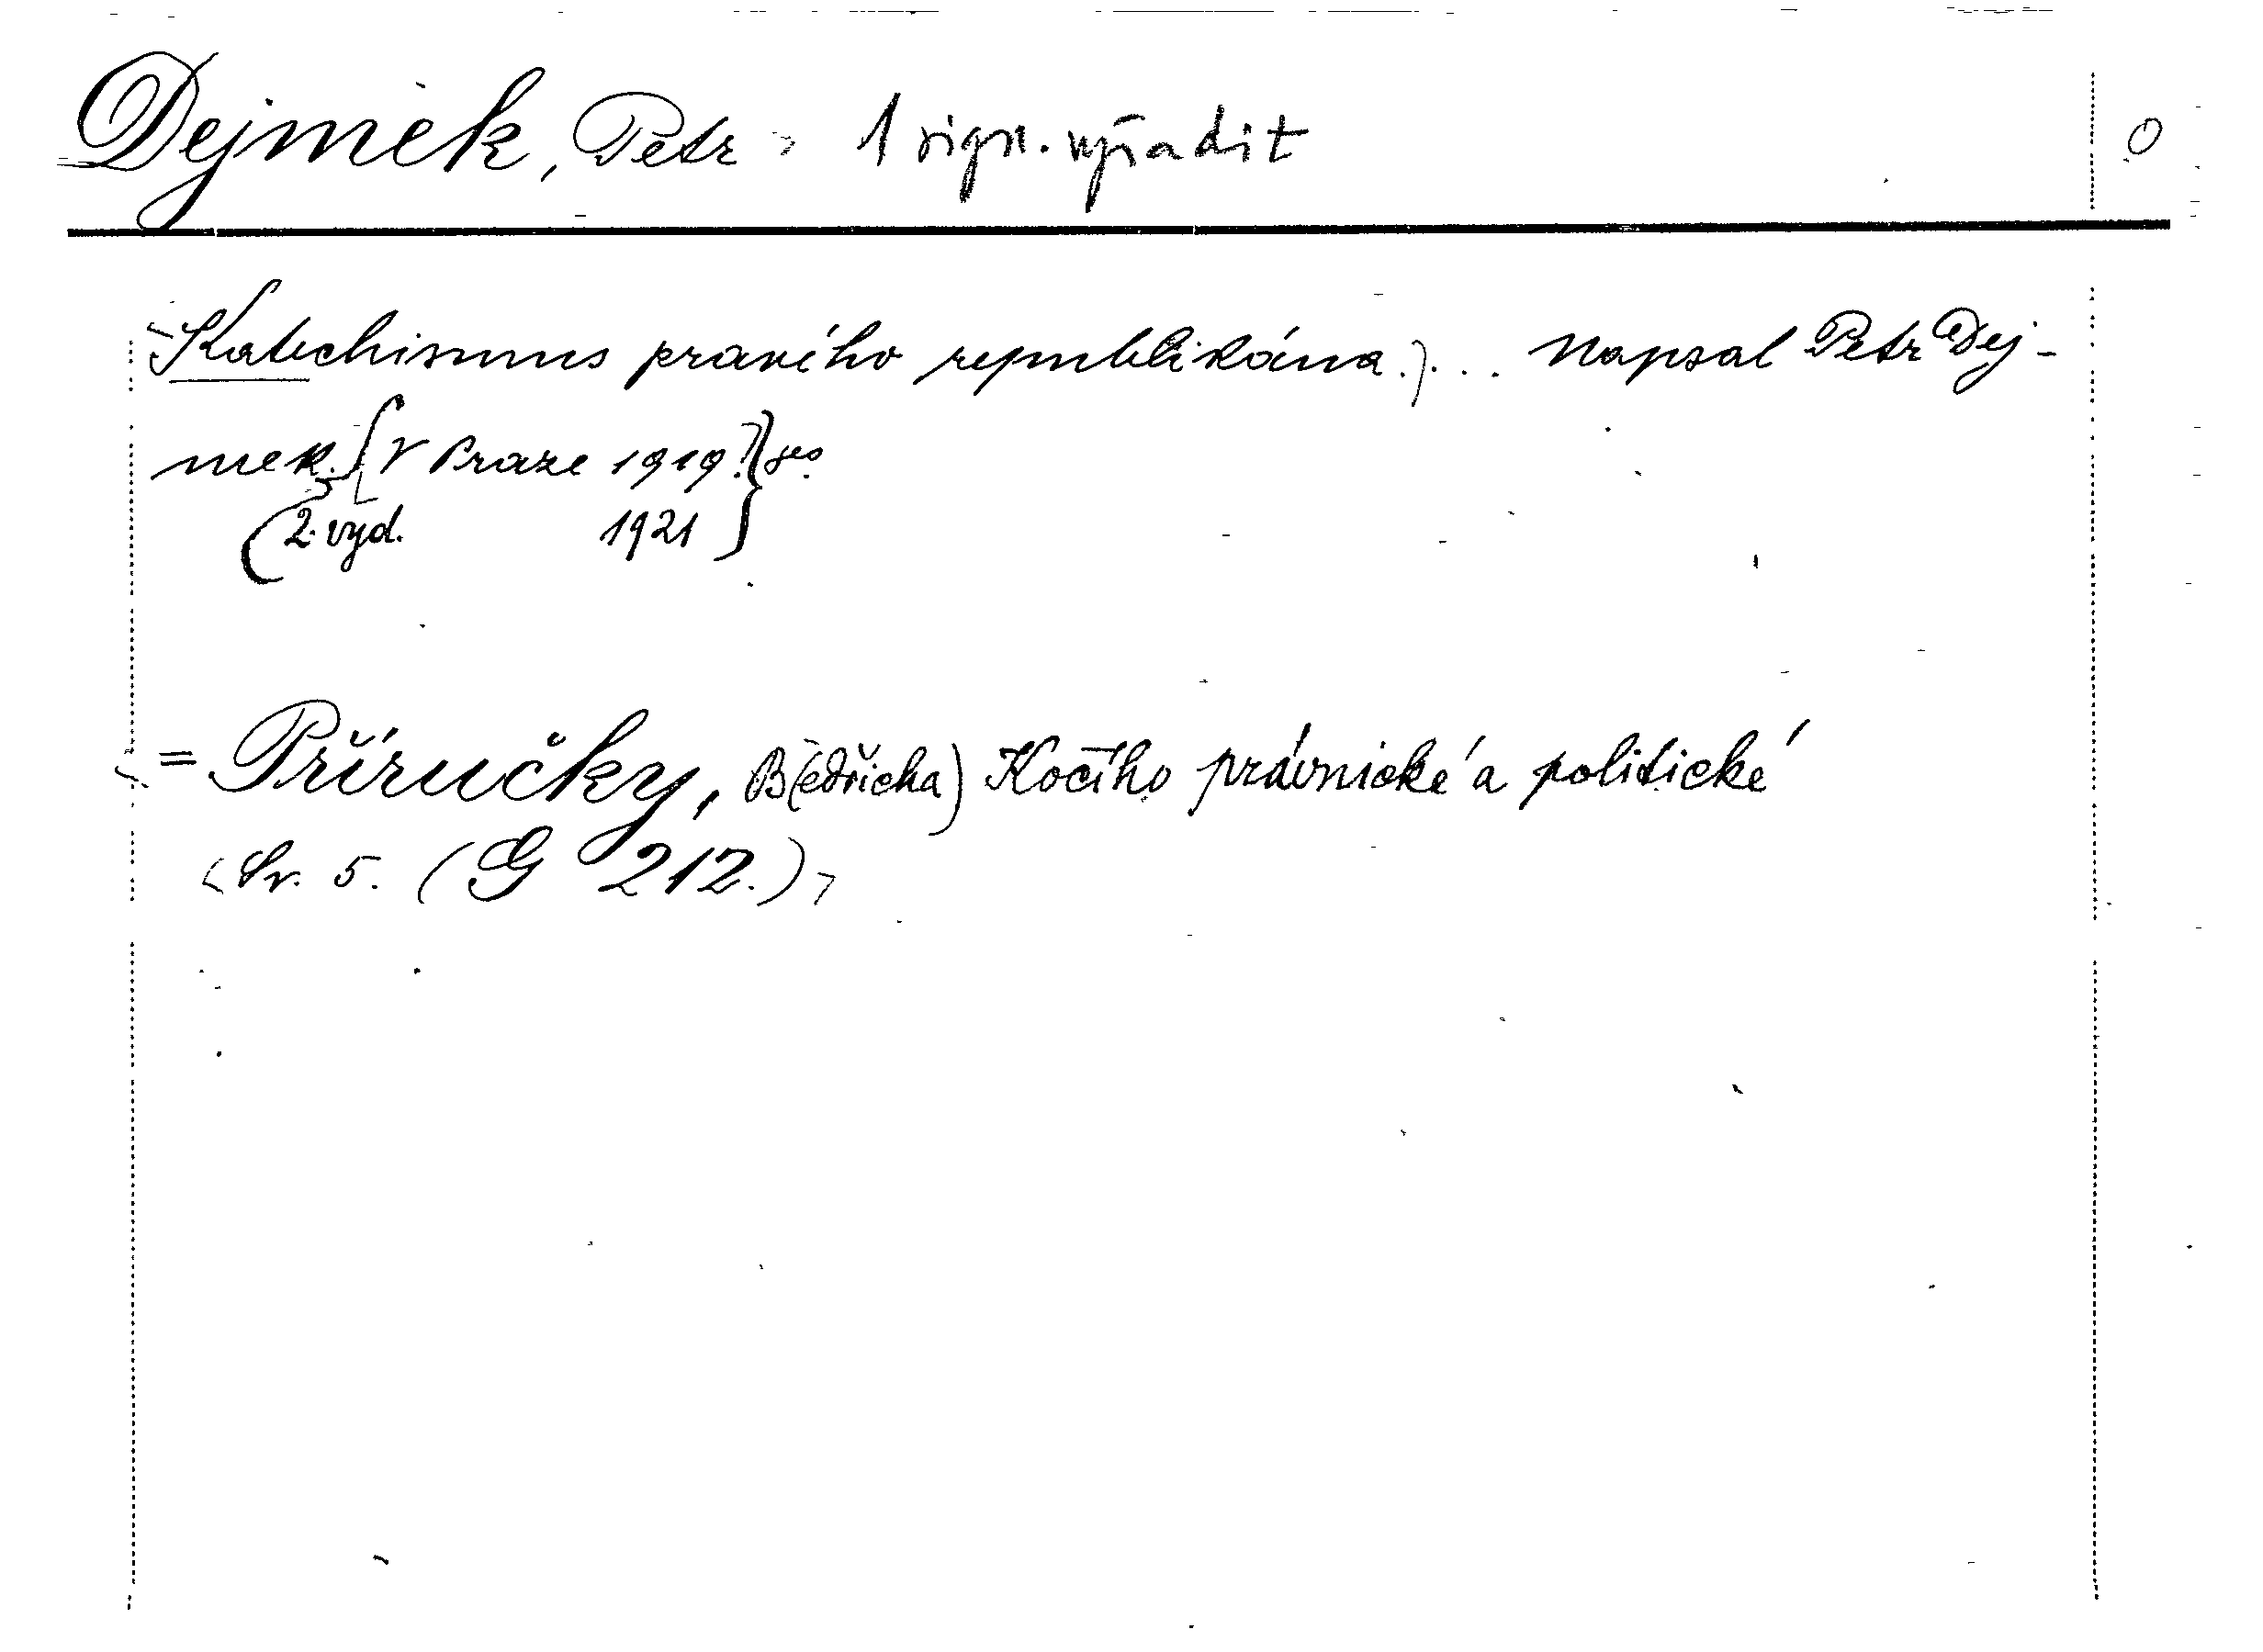 Dejmek, Petr 1 sign. vyřadit 0
Katechismus pravého republikána. ... Napsal Petr Dej-
mek. V Praze 1919. 8°.
2. vyd. 1921
= Příručky, B(edřicha) Kočího právnické a politické
Sv. 5. (G 212.)